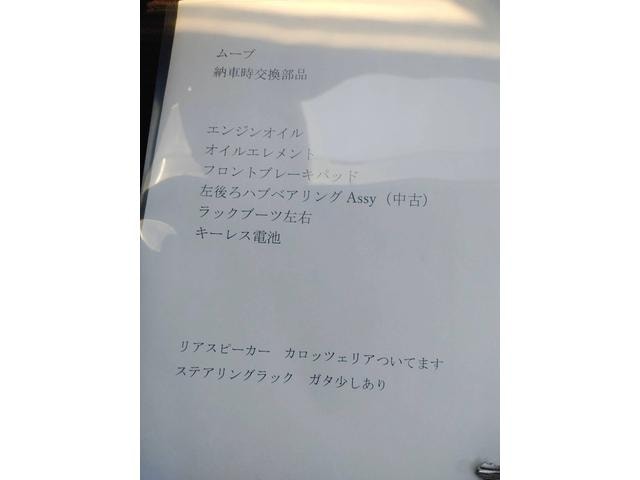 ムーブ
納車時交換部品
エンジンオイル
オイルエレメント
フロントブレーキパッド
左後ろハブベアリング Assy（中古）
ラックブーツ左右
キーレス電池
リアスピーカー　カロッツェリアついてます
ステアリングラック　ガタ少しあり